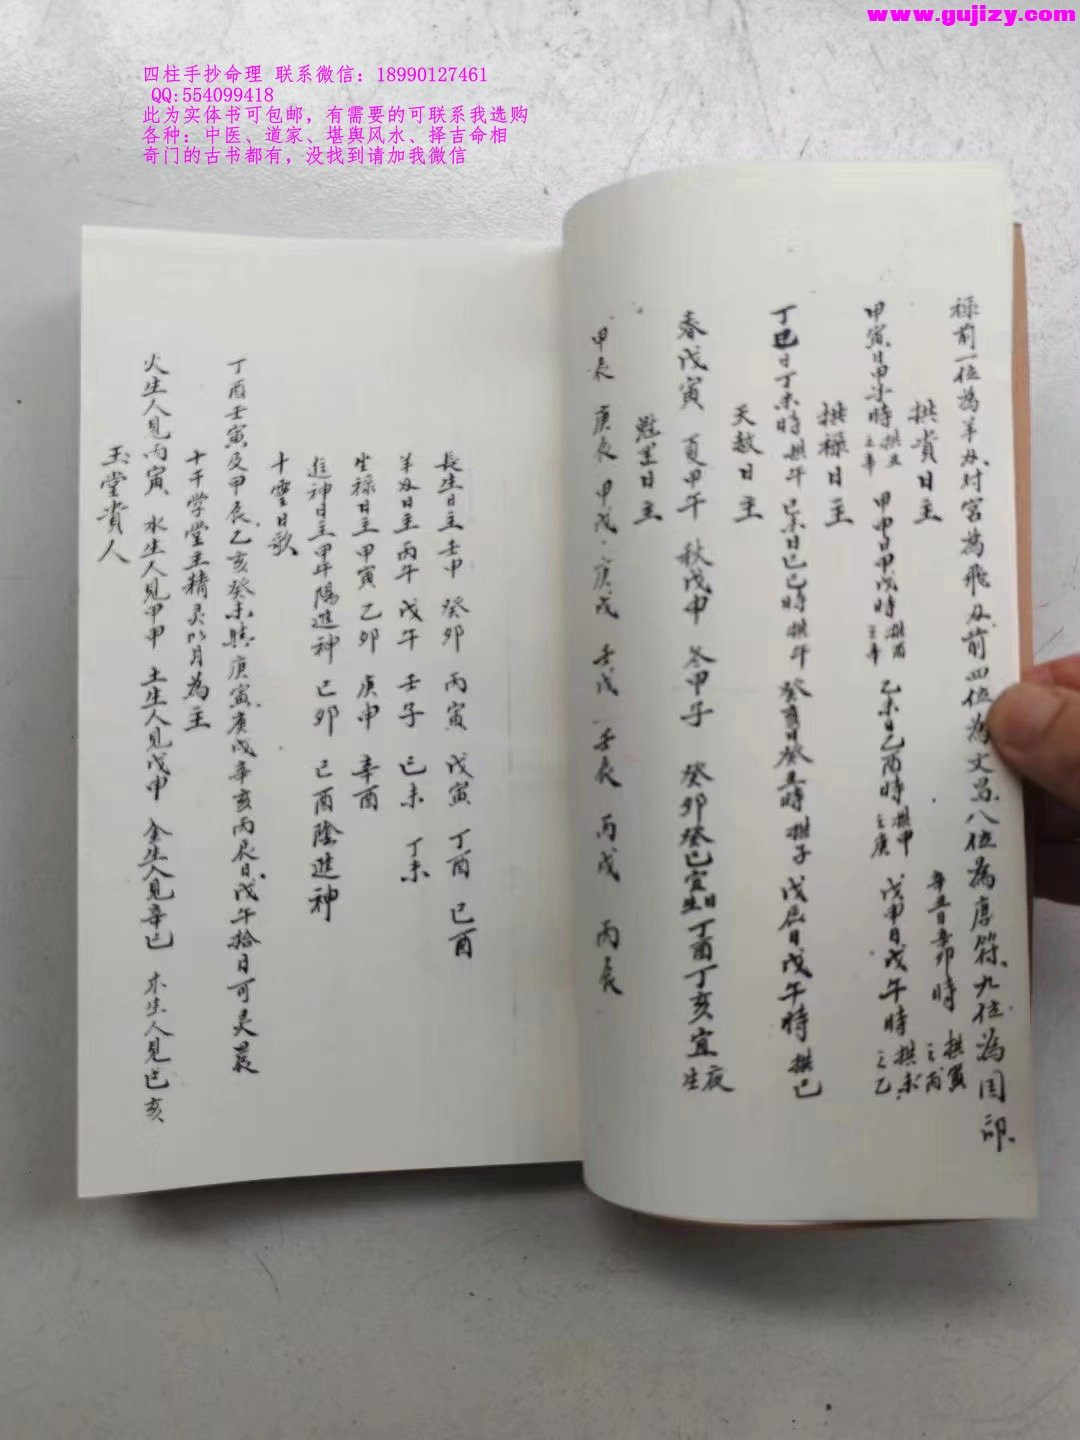 www.gujizy.com
四柱手抄命理 联系微信：18990127461
QQ:554099418
此为实体书可包邮，有需要的可联系我选购
各种：中医、道家、堪舆风水、择吉命相
奇门的古书都有，没找到请加我微信
禄前一位為羊刃对宮為飛刃前四位為文昌八位為唐符九位為国印
拱貴日主
甲寅日甲子時拱丑之辛 甲申日甲戌時拱酉之辛 乙未日乙酉時拱申之庚 戊申日戊午時拱未之乙 辛丑日辛卯時拱寅之丙
拱禄日主
丁巳日丁未時拱午 己未日己巳時拱午 癸亥日癸丑時拱子 戊辰日戊午時拱巳
天赦日主
春戊寅 夏甲午 秋戊申 冬甲子 癸卯癸巳宜日生 丁酉丁亥宜夜生
魁罡日主
甲辰 庚辰 甲戌 庚戌 壬戌 壬辰 丙戌 丙辰
長生日主 壬申 癸卯 丙寅 戊寅 丁酉 己酉
羊刃日主 丙午 戊午 壬子 己未 丁未
坐禄日主 甲寅 乙卯 庚申 辛酉
進神日主 甲午陽進神 己卯 己酉陰進神
十靈日歌
丁酉壬寅及甲辰乙亥癸未庚寅庚戌辛亥丙辰日戊午拾日可灵晨
十干学堂主精灵以月為主
火生人見丙寅 水生人見甲申 土生人見戊申 金生人見辛巳 木生人見己亥
玉堂貴人